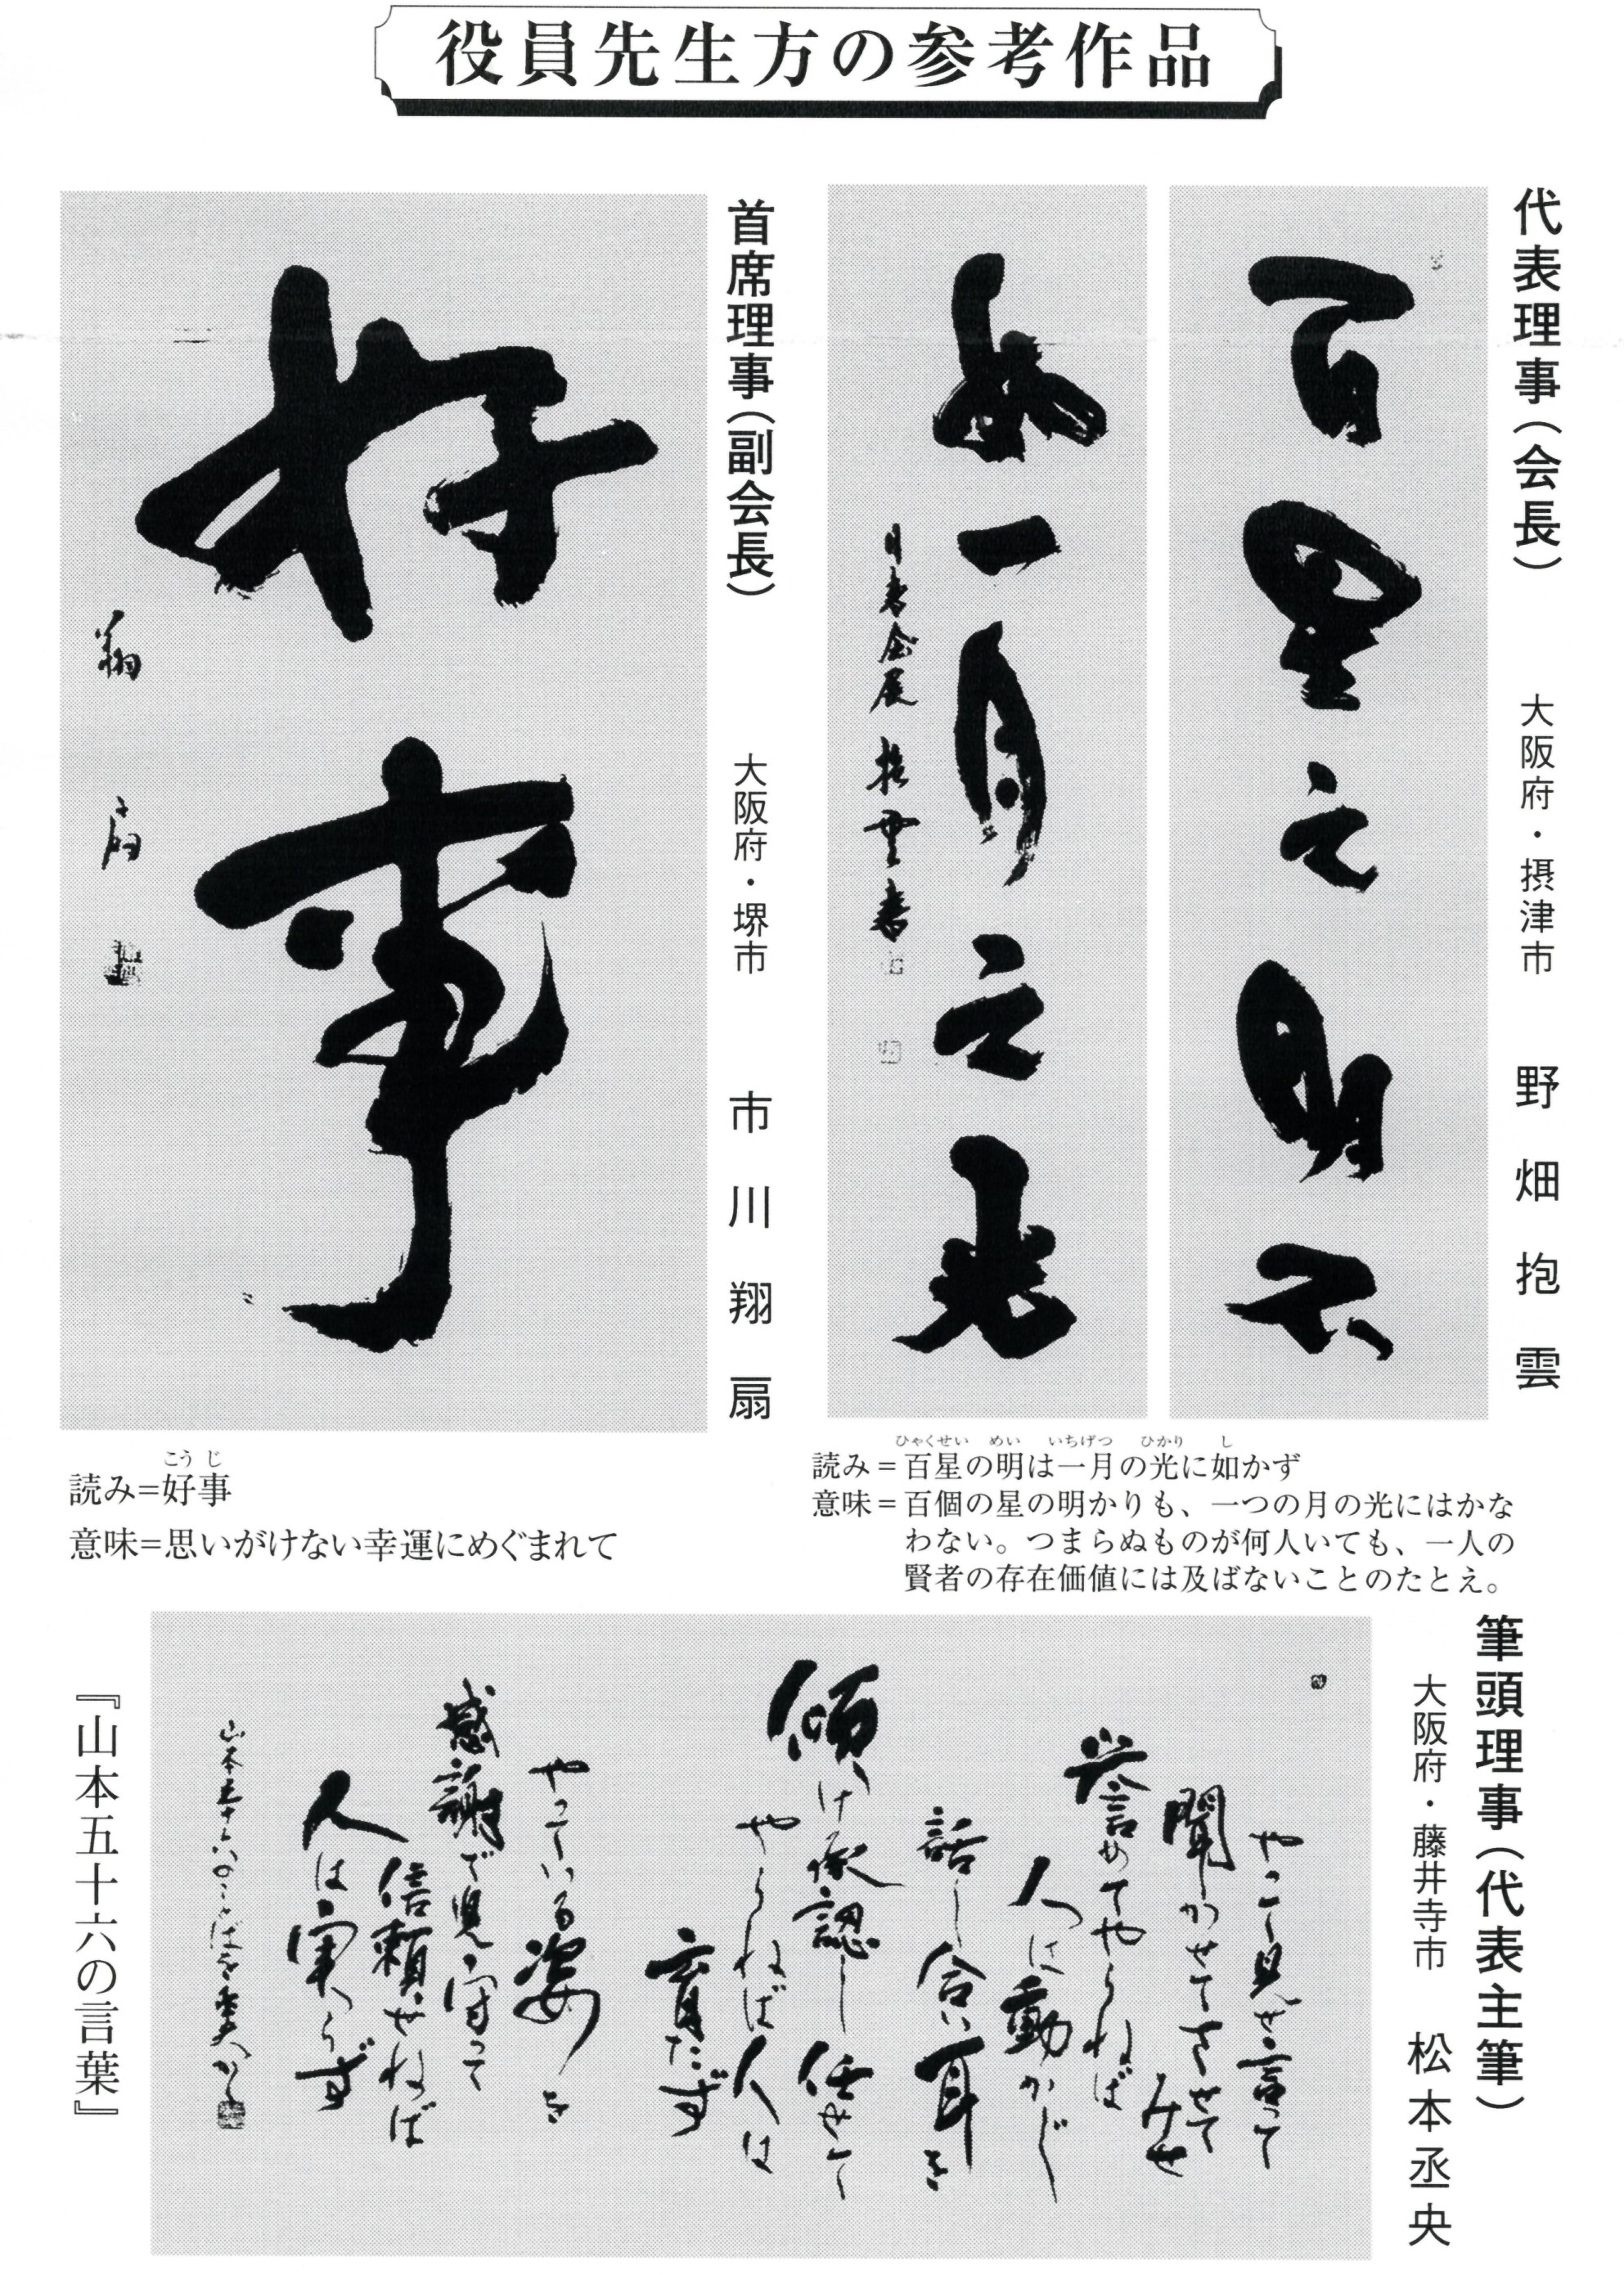 役員先生方の参考作品
代表理事（会長）　大阪府・摂津市　野畑抱雲
百星之明不
如一月之光
書会展　抱雲書
読み＝百星の明は一月の光に如かず
ひゃくせい　めい　いちげつ　ひかり　し
意味＝百個の星の明かりも、一つの月の光にはかな
わない。つまらぬものが何人いても、一人の
賢者の存在価値には及ばないことのたとえ。
首席理事（副会長）　大阪府・堺市　市川翔扇
好事
翔扇
読み＝好事
こうじ
意味＝思いがけない幸運にめぐまれて
筆頭理事（代表主筆）
大阪府・藤井寺市　松本丞央
やって見せ言って
聞かせてさせて
みせ
誉めてやらねば
人は動かじ
話し合い耳を
傾け承認し任せて
やらねば人は
育たず
やっている姿を
感謝で見守って
信頼せねば
人は実らず
山本五十六のことばを
『山本五十六の言葉』